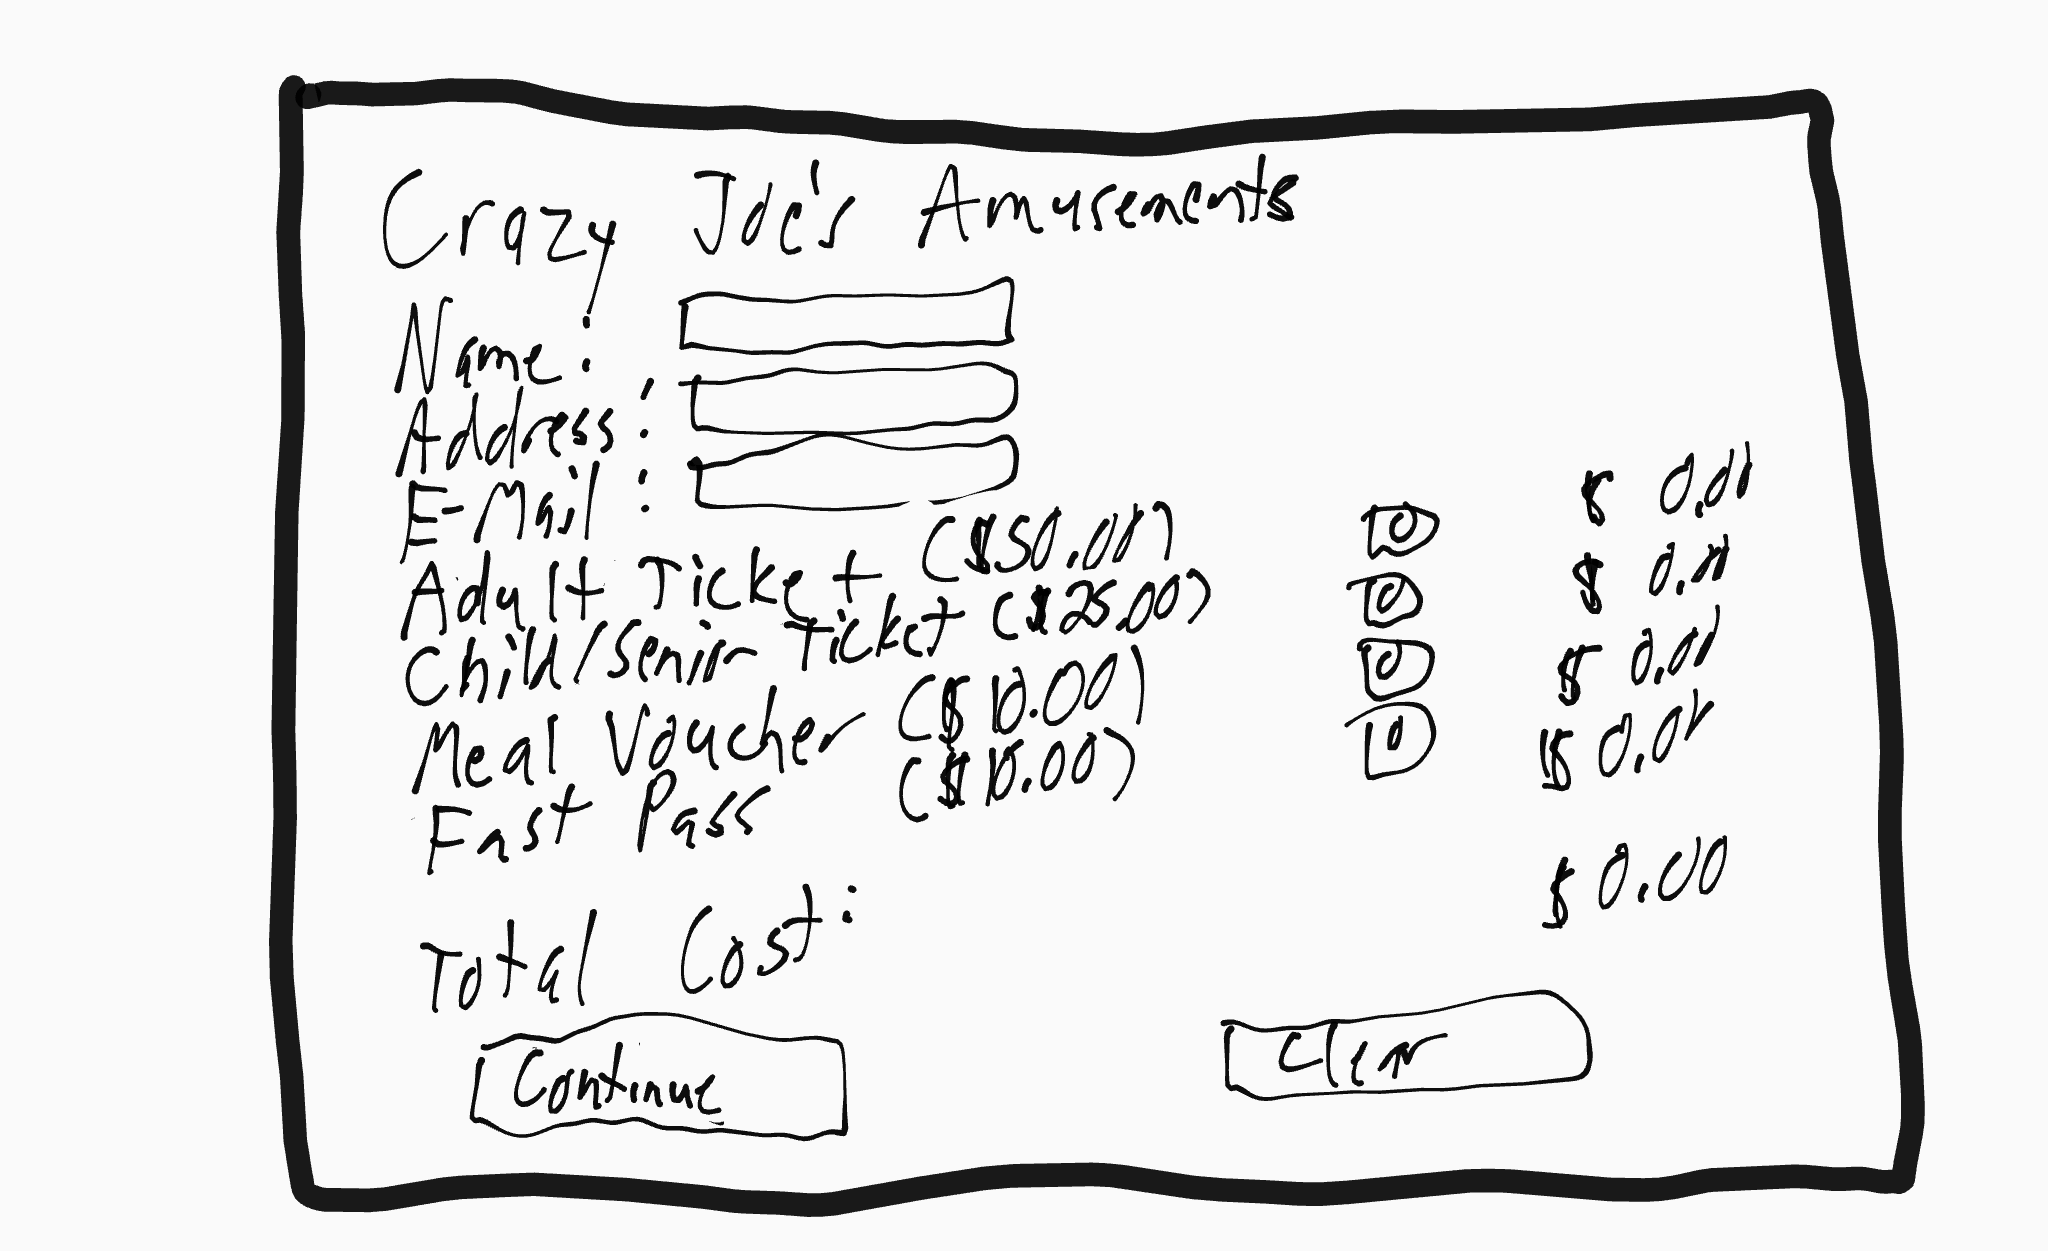 Crazy Joe's Amusements
Name:
Address:
E-Mail:
Adult Ticket ($50.00) 0 $ 0.00
Child/Senior Ticket ($25.00) 0 $ 0.00
Meal Voucher ($10.00) 0 $ 0.00
Fast Pass ($10.00) 0 $ 0.00
Total Cost: $ 0.00
Continue Clear